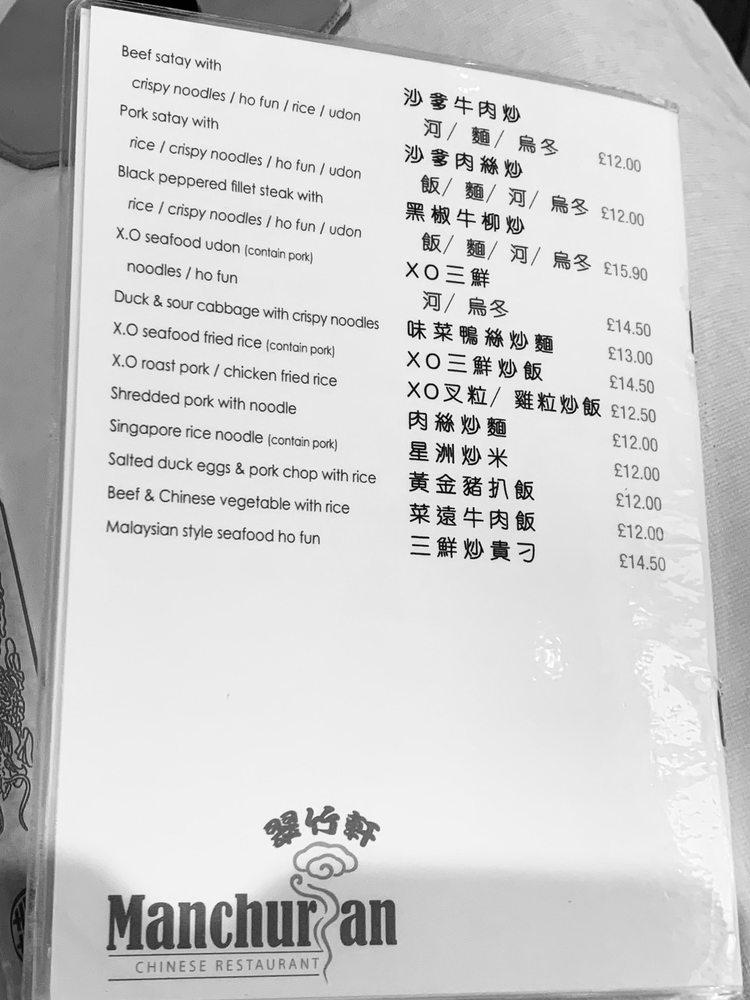 Beef satay with
crispy noodles / ho fun / rice / udon
沙爹牛肉炒
河/ 麵/ 烏冬 £12.00
Pork satay with
rice / crispy noodles / ho fun / udon
沙爹肉絲炒
飯/ 麵/ 河/ 烏冬 £12.00
Black peppered fillet steak with
rice / crispy noodles / ho fun / udon
黑椒牛柳炒
飯/ 麵/ 河/ 烏冬 £15.90
X.O seafood udon (contain pork)
noodles / ho fun
XO三鮮
河/ 烏冬 £14.50
Duck & sour cabbage with crispy noodles 味菜鴨絲炒麵 £13.00
X.O seafood fried rice (contain pork) XO三鮮炒飯 £14.50
X.O roast pork / chicken fried rice XO叉粒/ 雞粒炒飯 £12.50
Shredded pork with noodle 肉絲炒麵 £12.00
Singapore rice noodle (contain pork) 星洲炒米 £12.00
Salted duck eggs & pork chop with rice 黃金豬扒飯 £12.00
Beef & Chinese vegetable with rice 菜遠牛肉飯 £12.00
Malaysian style seafood ho fun 三鮮炒貴刁 £14.50
翠竹軒
Manchurian
CHINESE RESTAURANT